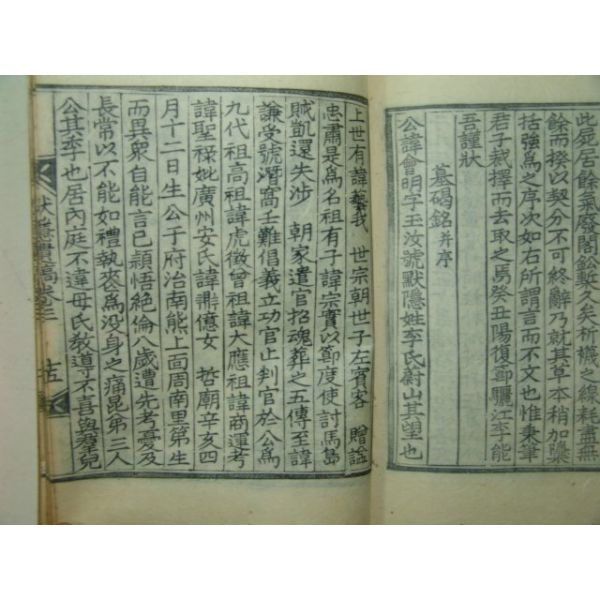 此屍居餘氣廢閣鉛槧久矣析娥之線耗盡無
餘而揆以契分不可終辭乃就其草本稍加櫽
括强爲之序次如右所謂言而不文也惟秉筆
君子裁擇而去取之焉癸丑陽復節驪江李能
吾謹狀
墓碣銘 幷序
公諱會明字玉汝號默隱姓李氏蔚山其望也
上世有諱藝我 世宗朝世子左賓客 贈諡
忠肅是爲名祖有子諱宗實以節度使討馬島
賊凱還失涉 朝家遣官招魂葬之五傳至諱
謙受號潛窩壬難倡義立功官止判官於公爲
九代祖高祖諱虎徵曾祖諱大應祖諱商運考
諱聖祿妣廣州安氏諱億女 哲廟辛亥四
月十二日生公于府治南熊上面周南里第生
而異衆自能言已頴悟絶倫八歲遭先考憂及
長常以不能如禮執喪爲沒身之痛昆弟三人
公其季也居內庭不違母氏敎導不喜與羣兒
默隱實稿卷三 十五